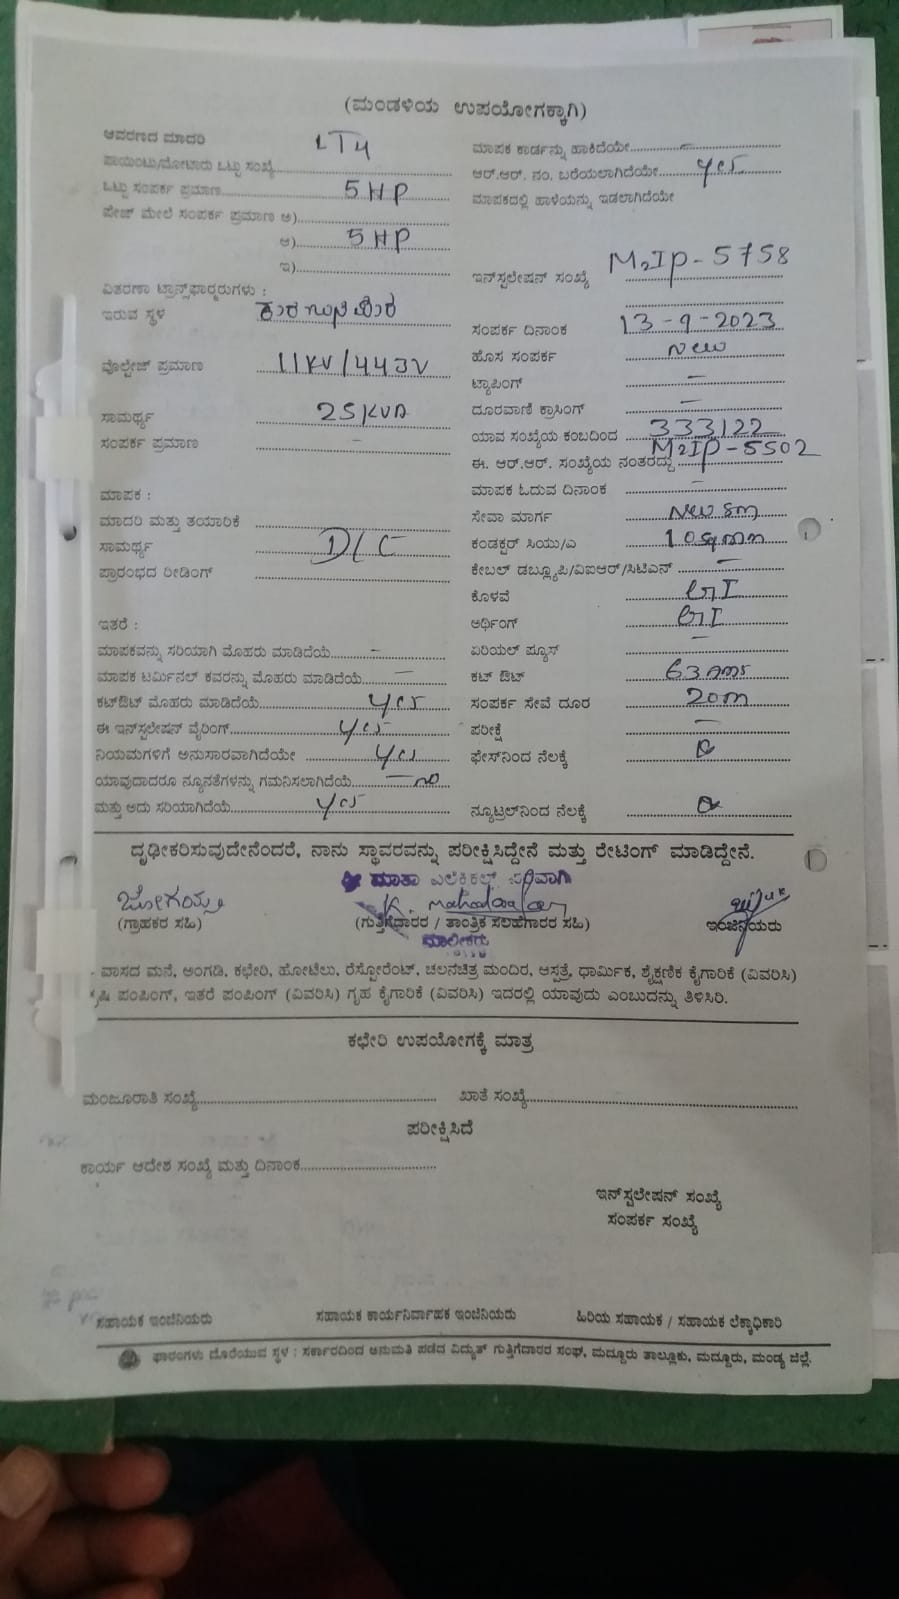 (ಮಂಡಳಿಯ ಉಪಯೋಗಕ್ಕಾಗಿ)
ಆವರಣದ ಮಾದರಿ LT4
ಪಾಯಿಂಟು/ಮೋಟಾರು ಒಟ್ಟು ಸಂಖ್ಯೆ
ಒಟ್ಟು ಸಂಪರ್ಕ ಪ್ರಮಾಣ 5HP
ಪೇಜ್ ಮೇಲೆ ಸಂಪರ್ಕ ಪ್ರಮಾಣ ಅ)
ಆ) 5HP
ಇ)
ವಿತರಣಾ ಟ್ರಾನ್ಸ್‌ಫಾರ್ಮರುಗಳು :
ಇರುವ ಸ್ಥಳ
ವೋಲ್ಟೇಜ್ ಪ್ರಮಾಣ 11KV/443V
ಸಾಮರ್ಥ್ಯ 25KVA
ಸಂಪರ್ಕ ಪ್ರಮಾಣ -
ಮಾಪಕ :
ಮಾದರಿ ಮತ್ತು ತಯಾರಿಕೆ
ಸಾಮರ್ಥ್ಯ D/C
ಪ್ರಾರಂಭದ ರೀಡಿಂಗ್
ಇತರೆ :
ಮಾಪಕವನ್ನು ಸರಿಯಾಗಿ ಮೊಹರು ಮಾಡಿದೆಯೆ -
ಮಾಪಕ ಟರ್ಮಿನಲ್ ಕವರನ್ನು ಮೊಹರು ಮಾಡಿದೆಯೆ -
ಕಟ್‌ಔಟ್ ಮೊಹರು ಮಾಡಿದೆಯೆ yes
ಈ ಇನ್‌ಸ್ಟಲೇಷನ್ ವೈರಿಂಗ್ yes
ನಿಯಮಗಳಿಗೆ ಅನುಸಾರವಾಗಿದೆಯೇ yes
ಯಾವುದಾದರೂ ನ್ಯೂನತೆಗಳನ್ನು ಗಮನಿಸಲಾಗಿದೆಯೆ - no
ಮತ್ತು ಅದು ಸರಿಯಾಗಿದೆಯೆ yes
ಮಾಪಕ ಕಾರ್ಡನ್ನು ಹಾಕಿದೆಯೇ -
ಆರ್.ಆರ್. ನಂ. ಬರೆಯಲಾಗಿದೆಯೇ yes
ಮಾಪಕದಲ್ಲಿ ಹಾಳೆಯನ್ನು ಇಡಲಾಗಿದೆಯೇ
ಇನ್‌ಸ್ಟಲೇಷನ್ ಸಂಖ್ಯೆ M2IP-5758
ಸಂಪರ್ಕ ದಿನಾಂಕ 13-9-2023
ಹೊಸ ಸಂಪರ್ಕ New
ಟ್ಯಾಪಿಂಗ್ -
ದೂರವಾಣಿ ಕ್ರಾಸಿಂಗ್ -
ಯಾವ ಸಂಖ್ಯೆಯ ಕಂಬದಿಂದ 333/22
ಈ. ಆರ್.ಆರ್. ಸಂಖ್ಯೆಯ ನಂತರದ್ದು M2IP-5502
ಮಾಪಕ ಓದುವ ದಿನಾಂಕ -
ಸೇವಾ ಮಾರ್ಗ New sm
ಕಂಡಕ್ಟರ್ ಸಿಯು/ಎ 10sqmm
ಕೇಬಲ್ ಡಬ್ಲ್ಯೂಪಿ/ವಿಐಆರ್/ಸಿಟಿಎಸ್ -
ಕೊಳವೆ GI
ಅರ್ಥಿಂಗ್ GI
ಏರಿಯಲ್ ಫ್ಯೂಸ್ -
ಕಟ್ ಔಟ್ 63Ams
ಸಂಪರ್ಕ ಸೇವೆ ದೂರ 20m
ಪರೀಕ್ಷೆ -
ಫೇಸ್‌ನಿಂದ ನೆಲಕ್ಕೆ
ನ್ಯೂಟ್ರಲ್‌ನಿಂದ ನೆಲಕ್ಕೆ
ದೃಢೀಕರಿಸುವುದೇನೆಂದರೆ, ನಾನು ಸ್ಥಾವರವನ್ನು ಪರೀಕ್ಷಿಸಿದ್ದೇನೆ ಮತ್ತು ರೇಟಿಂಗ್ ಮಾಡಿದ್ದೇನೆ.
ಎಲೆಕ್ಟ್ರಿಕಲ್ಸ್ ಪರವಾಗಿ
(ಗ್ರಾಹಕರ ಸಹಿ) (ಗುತ್ತಿಗೆದಾರರ / ತಾಂತ್ರಿಕ ಸಲಹೆಗಾರರ ಸಹಿ) ಇಂಜಿನಿಯರು
ಮಾಲೀಕರು
ವಾಸದ ಮನೆ, ಅಂಗಡಿ, ಕಛೇರಿ, ಹೋಟೆಲು, ರೆಸ್ಟೋರೆಂಟ್, ಚಲನಚಿತ್ರ ಮಂದಿರ, ಆಸ್ಪತ್ರೆ, ಧಾರ್ಮಿಕ, ಶೈಕ್ಷಣಿಕ ಕೈಗಾರಿಕೆ (ವಿವರಿಸಿ)
ಕೃಷಿ ಪಂಪಿಂಗ್, ಇತರೆ ಪಂಪಿಂಗ್ (ವಿವರಿಸಿ) ಗೃಹ ಕೈಗಾರಿಕೆ (ವಿವರಿಸಿ) ಇದರಲ್ಲಿ ಯಾವುದು ಎಂಬುದನ್ನು ತಿಳಿಸಿರಿ.
ಕಛೇರಿ ಉಪಯೋಗಕ್ಕೆ ಮಾತ್ರ
ಮಂಜೂರಾತಿ ಸಂಖ್ಯೆ ಖಾತೆ ಸಂಖ್ಯೆ
ಪರೀಕ್ಷಿಸಿದೆ
ಕಾರ್ಯ ಆದೇಶ ಸಂಖ್ಯೆ ಮತ್ತು ದಿನಾಂಕ
ಇನ್‌ಸ್ಟಲೇಷನ್ ಸಂಖ್ಯೆ
ಸಂಪರ್ಕ ಸಂಖ್ಯೆ
ಸಹಾಯಕ ಇಂಜಿನಿಯರು ಸಹಾಯಕ ಕಾರ್ಯನಿರ್ವಾಹಕ ಇಂಜಿನಿಯರು ಹಿರಿಯ ಸಹಾಯಕ / ಸಹಾಯಕ ಲೆಕ್ಕಾಧಿಕಾರಿ
ಫಾರಂಗಳು ದೊರೆಯುವ ಸ್ಥಳ : ಸರ್ಕಾರದಿಂದ ಅನುಮತಿ ಪಡೆದ ವಿದ್ಯುತ್ ಗುತ್ತಿಗೆದಾರರ ಸಂಘ, ಮದ್ದೂರು ತಾಲ್ಲೂಕು, ಮದ್ದೂರು, ಮಂಡ್ಯ ಜಿಲ್ಲೆ.